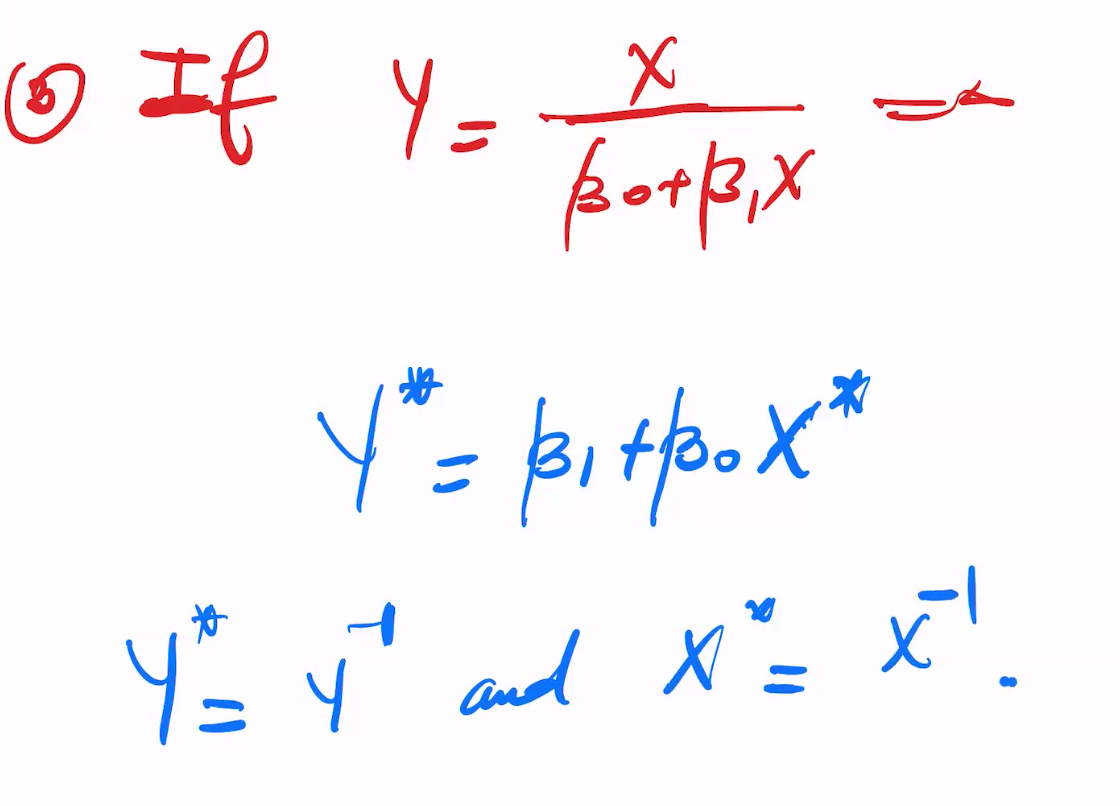 ③ If Y = X / (β₀ + β₁X) ⇒
Y* = β₁ + β₀X*
Y* = Y⁻¹ and X* = X⁻¹.